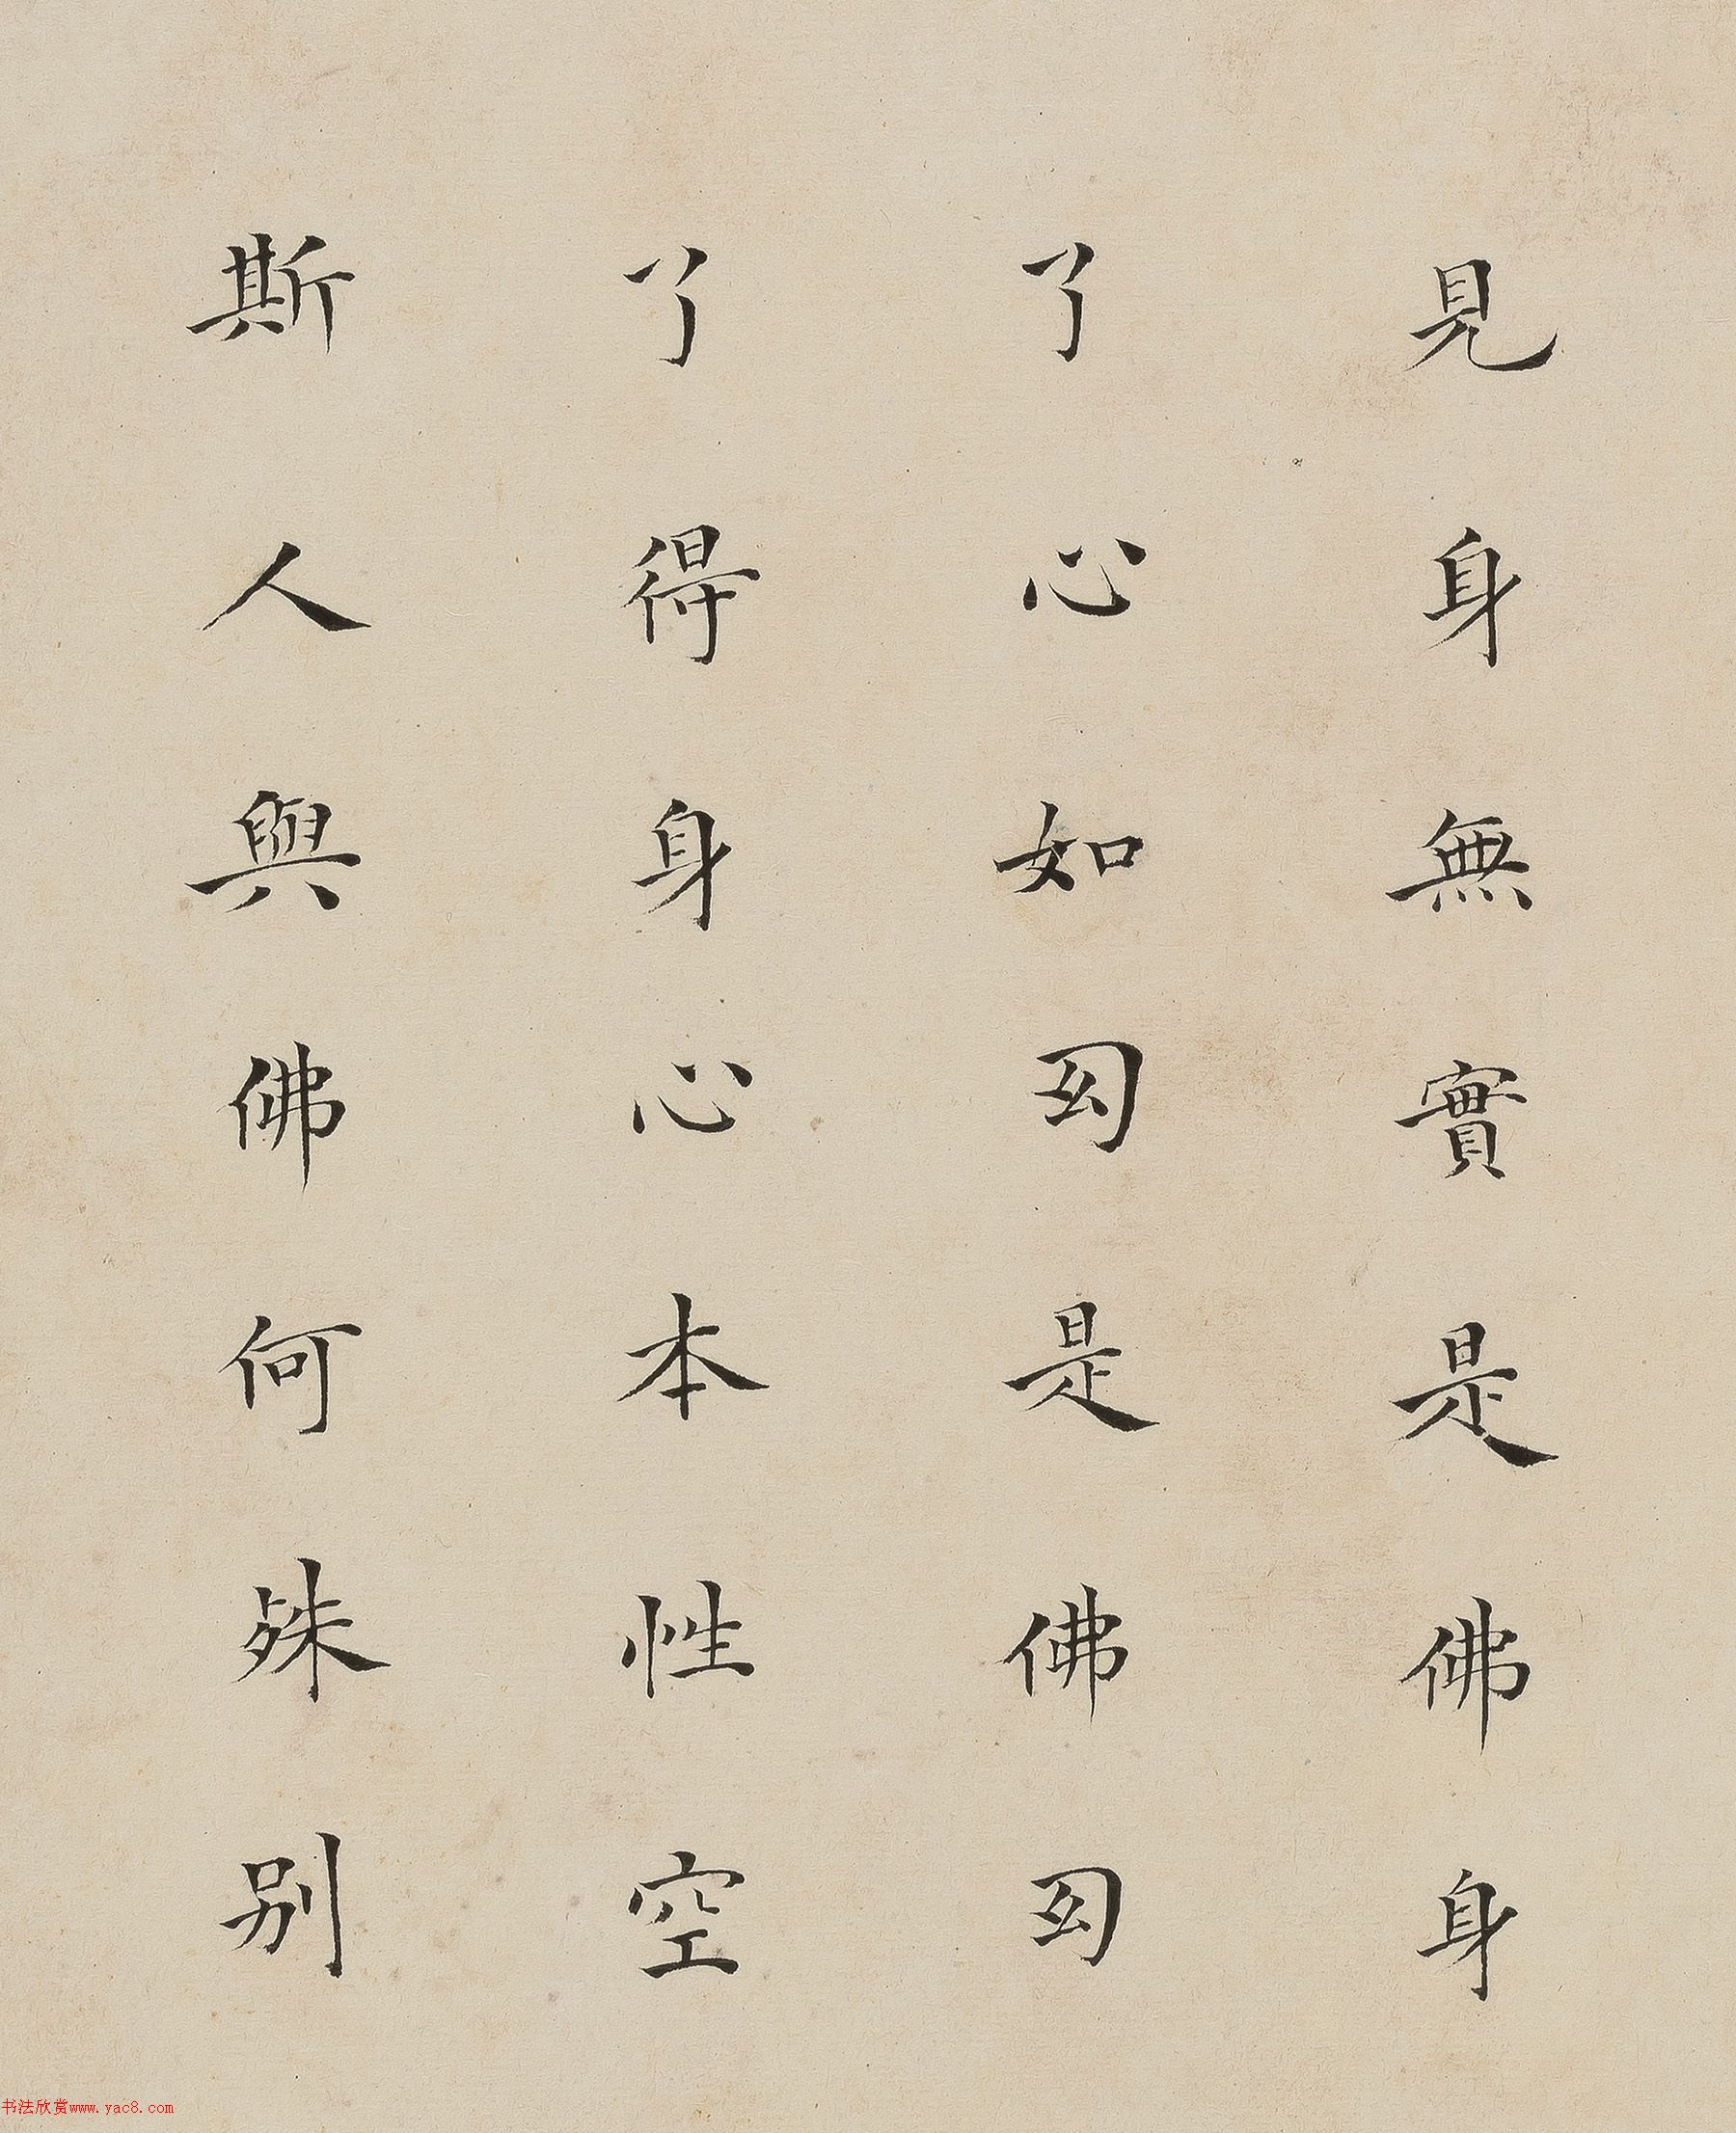 見身無實是佛身
了心如幻是佛幻
了得身心本性空
斯人與佛何殊别
书法欣赏www.yac8.com